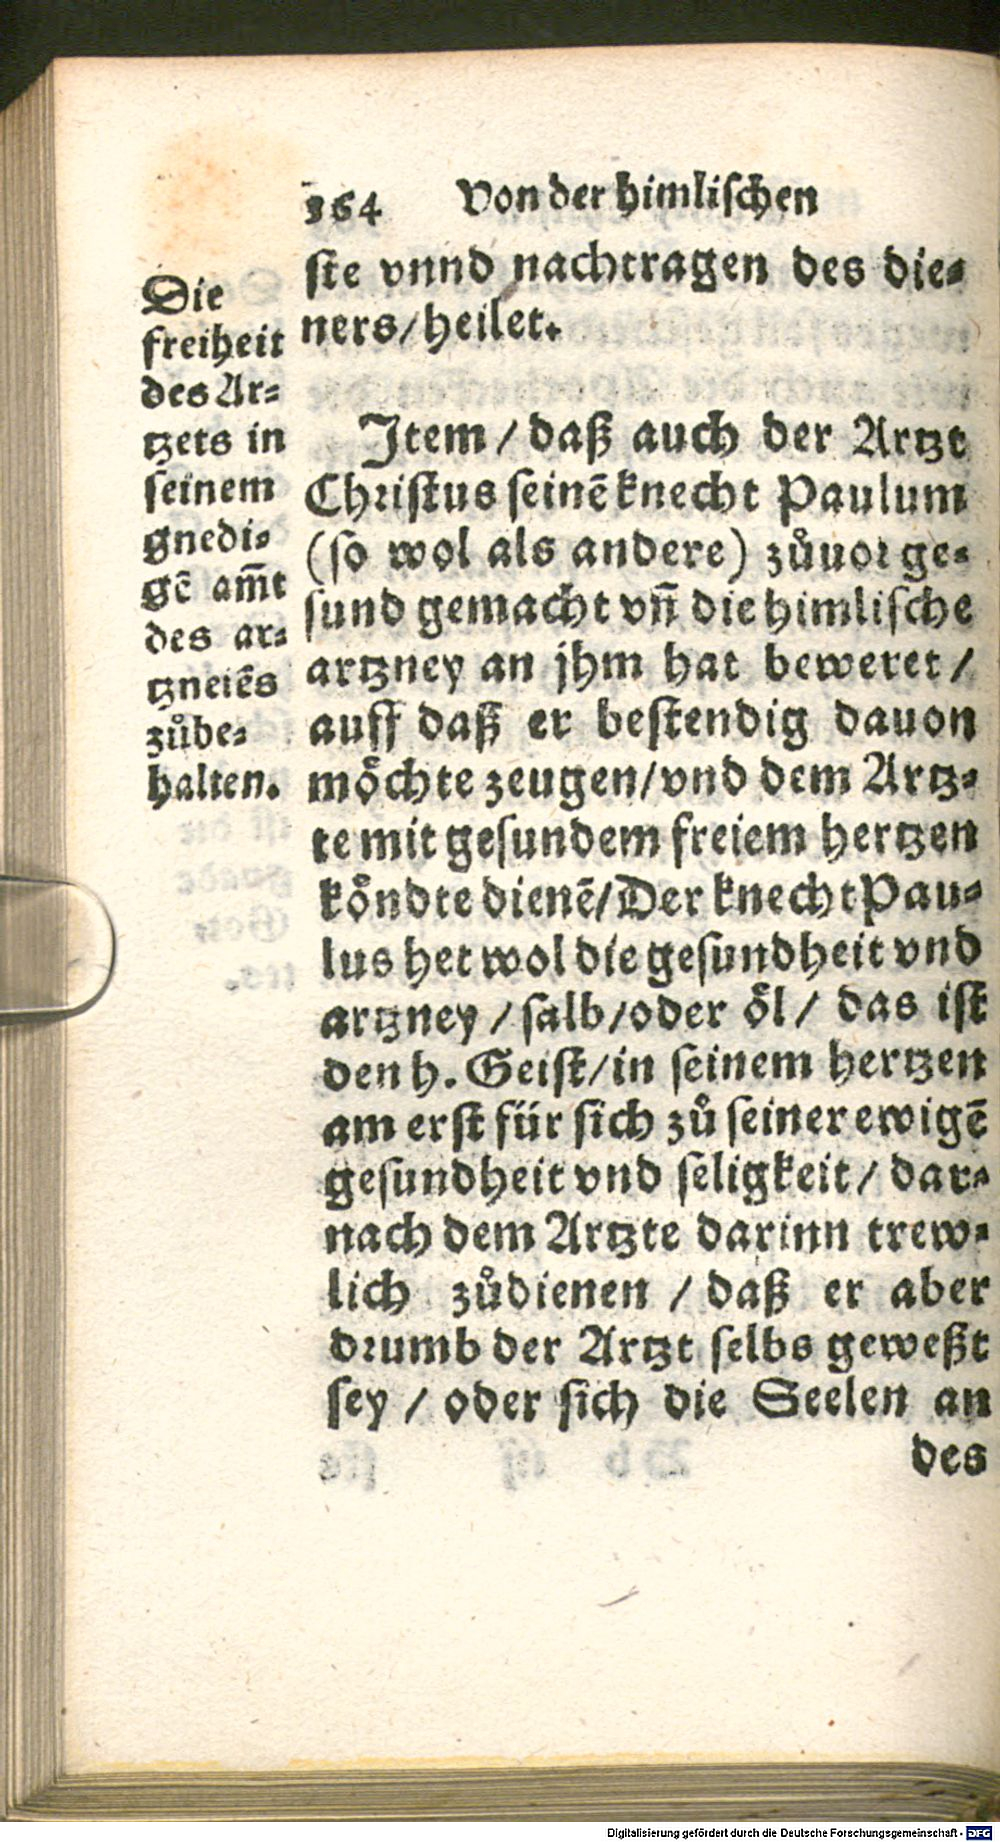 364 Von der himlischen
ste vnnd nachtragen des die-
ners/heilet.
Die
freiheit
des Ar-
tzets in
seinem
gnedi-
gē am̄t
des ar-
tzneiēs
zůbe-
halten.
Item / daß auch der Artzt
Christus seinē knecht Paulum
(so wol als andere) zůuor ge-
sund gemacht vn̄ die himlische
artzney an jhm hat beweret /
auff daß er bestendig dauon
möchte zeugen/vnd dem Artz-
te mit gesundem freiem hertzen
köndte dienē/Der knecht Pau-
lus het wol die gesundheit vnd
artzney / salb/oder öl / das ist
den h. Geist/in seinem hertzen
am erst für sich zů seiner ewigē
gesundheit vnd seligkeit / dar-
nach dem Artzte darinn trew-
lich zůdienen / daß er aber
drumb der Artzt selbs geweßt
sey / oder sich die Seelen an
des
Digitalisierung gefördert durch die Deutsche Forschungsgemeinschaft - DFG